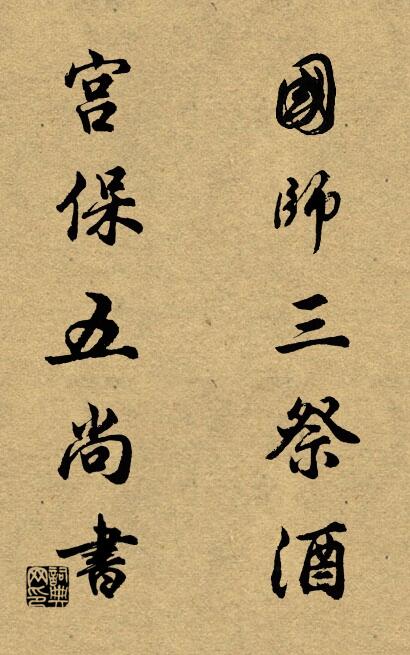 國師三祭酒
宮保五尚書
詞典網印